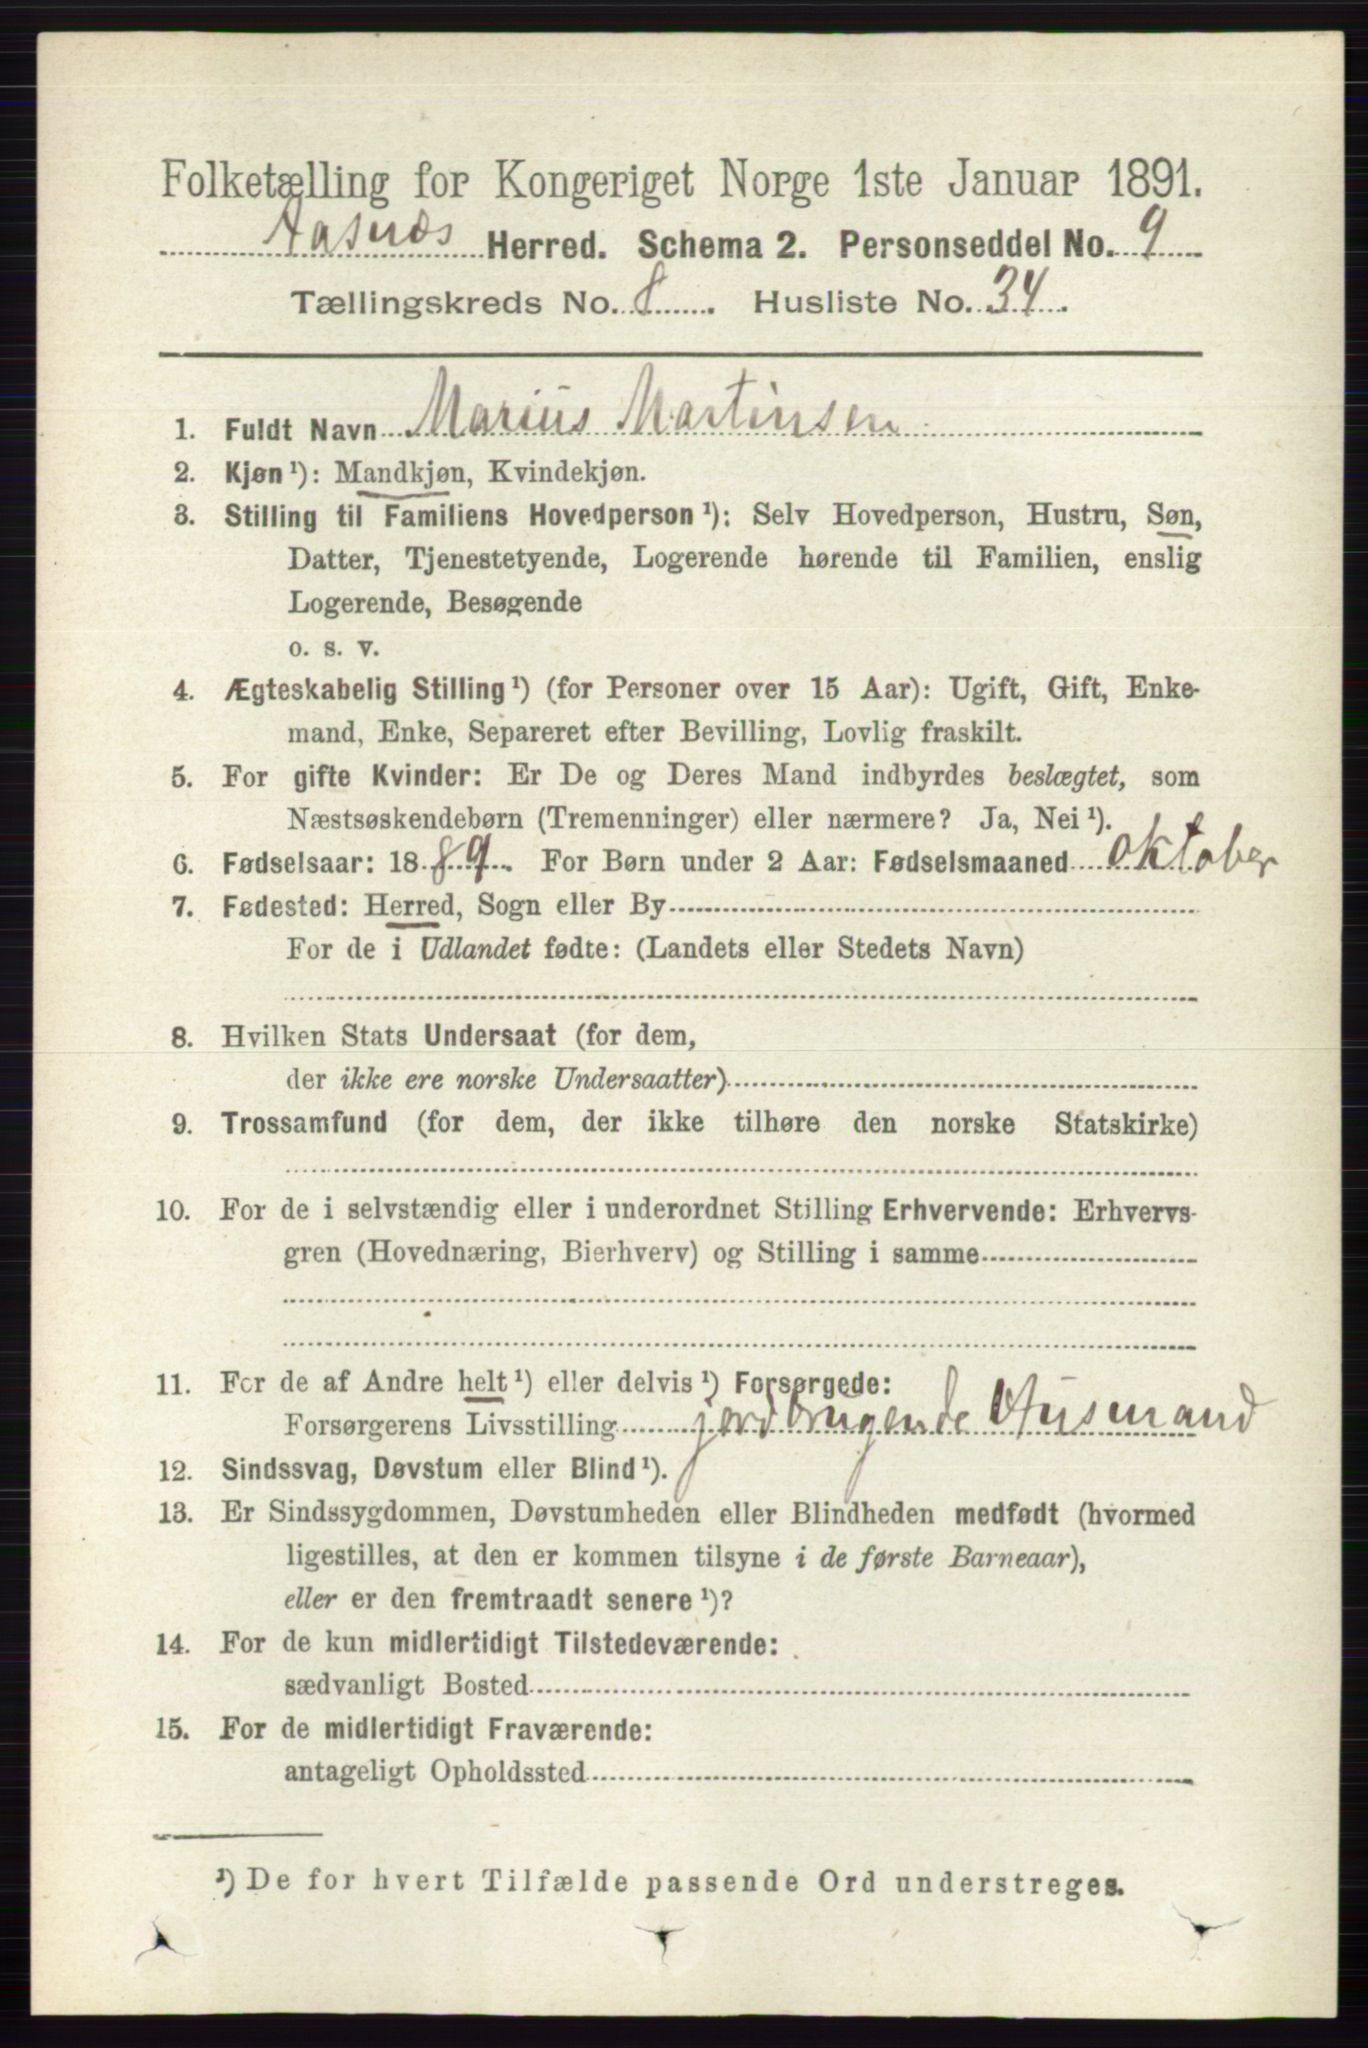 Folketælling for Kongeriget Norge 1ste Januar 1891.
Aasnæs Herred. Schema 2. Personseddel No. 9
Tællingskreds No. 8. Husliste No. 34.
1. Fuldt Navn Marius Martinsen
2. Kjøn¹): Mandkjøn, Kvindekjøn.
3. Stilling til Familiens Hovedperson¹): Selv Hovedperson, Hustru, Søn,
Datter, Tjenestetyende, Logerende hørende til Familien, enslig
Logerende, Besøgende
o. s. v.
4. Ægteskabelig Stilling¹) (for Personer over 15 Aar): Ugift, Gift, Enke-
mand, Enke, Separeret efter Bevilling, Lovlig fraskilt.
5. For gifte Kvinder: Er De og Deres Mand indbyrdes beslægtet, som
Næstsøskendebørn (Tremenninger) eller nærmere? Ja, Nei¹).
6. Fødselsaar: 1889. For Børn under 2 Aar: Fødselsmaaned oktober
7. Fødested: Herred, Sogn eller By
For de i Udlandet fødte: (Landets eller Stedets Navn)
8. Hvilken Stats Undersaat (for dem,
der ikke ere norske Undersaatter)
9. Trossamfund (for dem, der ikke tilhøre den norske Statskirke)
10. For de i selvstændig eller i underordnet Stilling Erhvervende: Erhvervs-
gren (Hovednæring, Bierhverv) og Stilling i samme
11. For de af Andre helt¹) eller delvis¹) Forsørgede:
Forsørgerens Livsstilling jordbrugende Husmand
12. Sindssvag, Døvstum eller Blind¹).
13. Er Sindssygdommen, Døvstumheden eller Blindheden medfødt (hvormed
ligestilles, at den er kommen tilsyne i de første Barneaar),
eller er den fremtraadt senere¹)?
14. For de kun midlertidigt Tilstedeværende:
sædvanligt Bosted
15. For de midlertidigt Fraværende:
antageligt Opholdssted
¹) De for hvert Tilfælde passende Ord understreges.